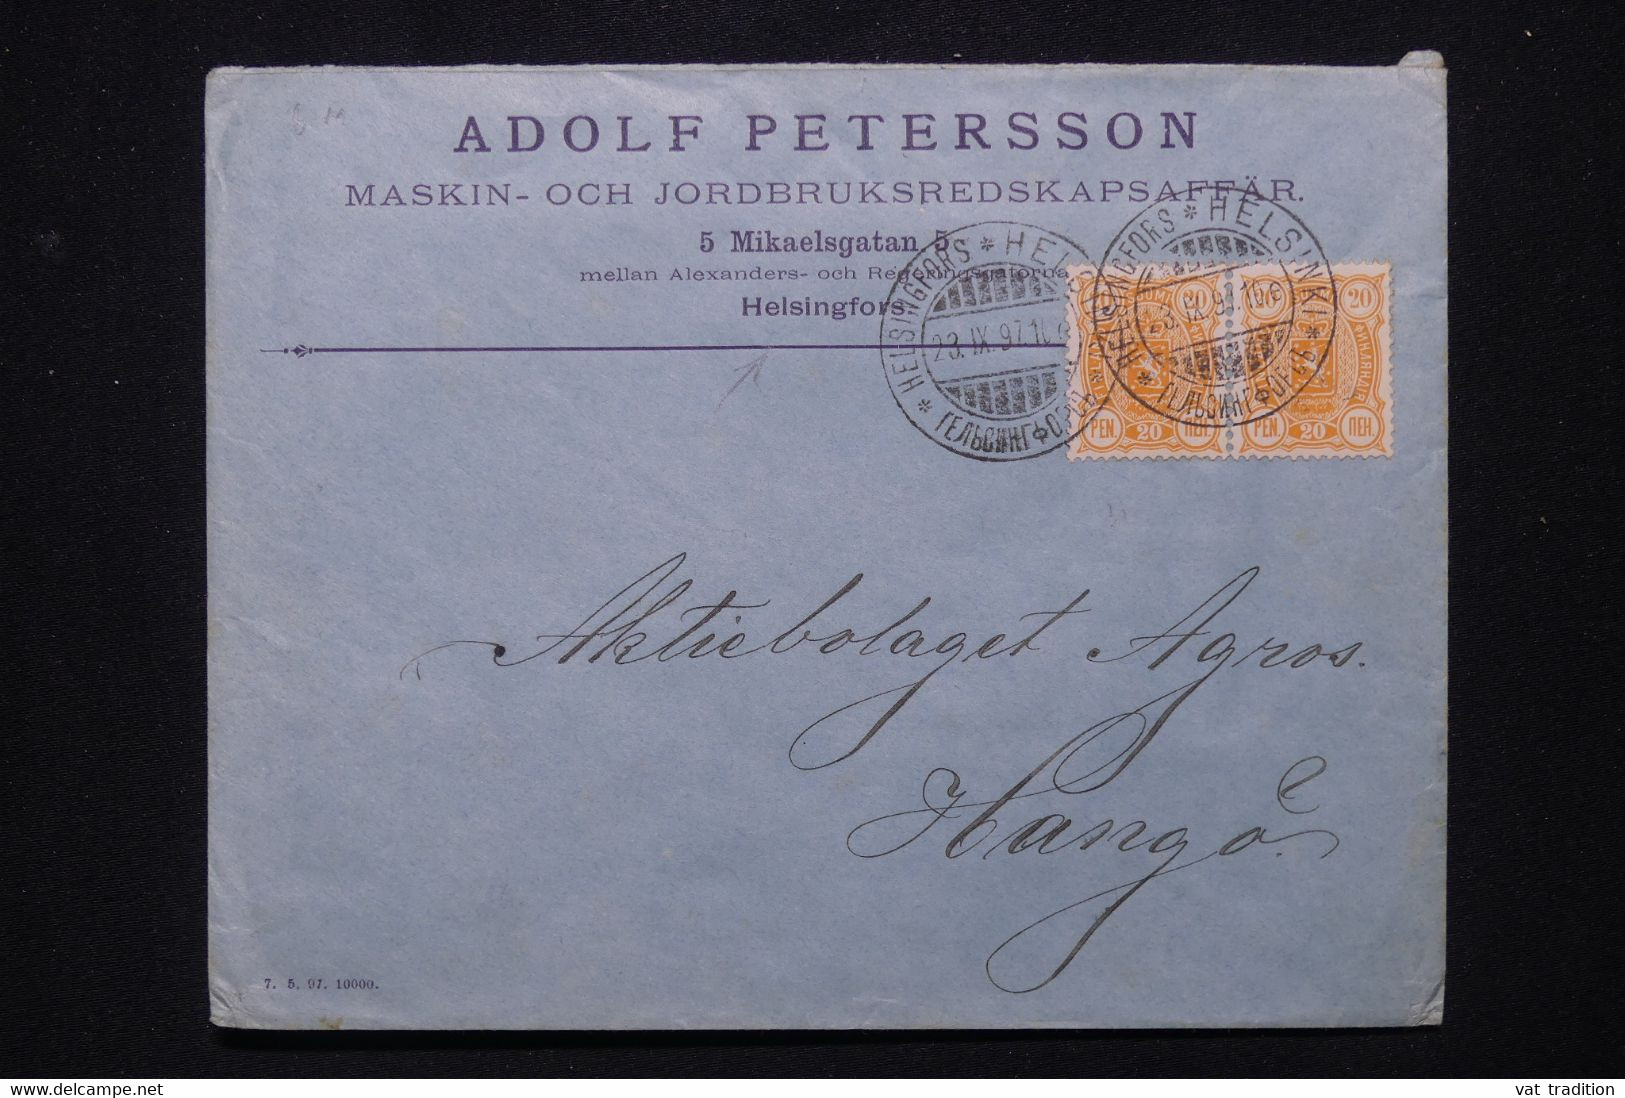 ADOLF PETERSSON
MASKIN- OCH JORDBRUKSREDSKAPSAFFÄR.
5 Mikaelsgatan 5
mellan Alexanders- och Regeringsgatorna
Helsingfors.
* HELSINGFORS * HEL
23. IX. 97. 10
ГЕЛЬСИНГФОРСЪ *
HELSINGFORS * HELSINKI
23. IX. 97. 10
* ГЕЛЬСИНГФОРСЪ *
PEN. 20 ПЕН.
20
ФИНЛЯНДІЯ
PEN. 20 ПЕН.
Aktiebolaget Agros.
Hangö.
7. 5. 97. 10000.
delcampe.net
vat tradition